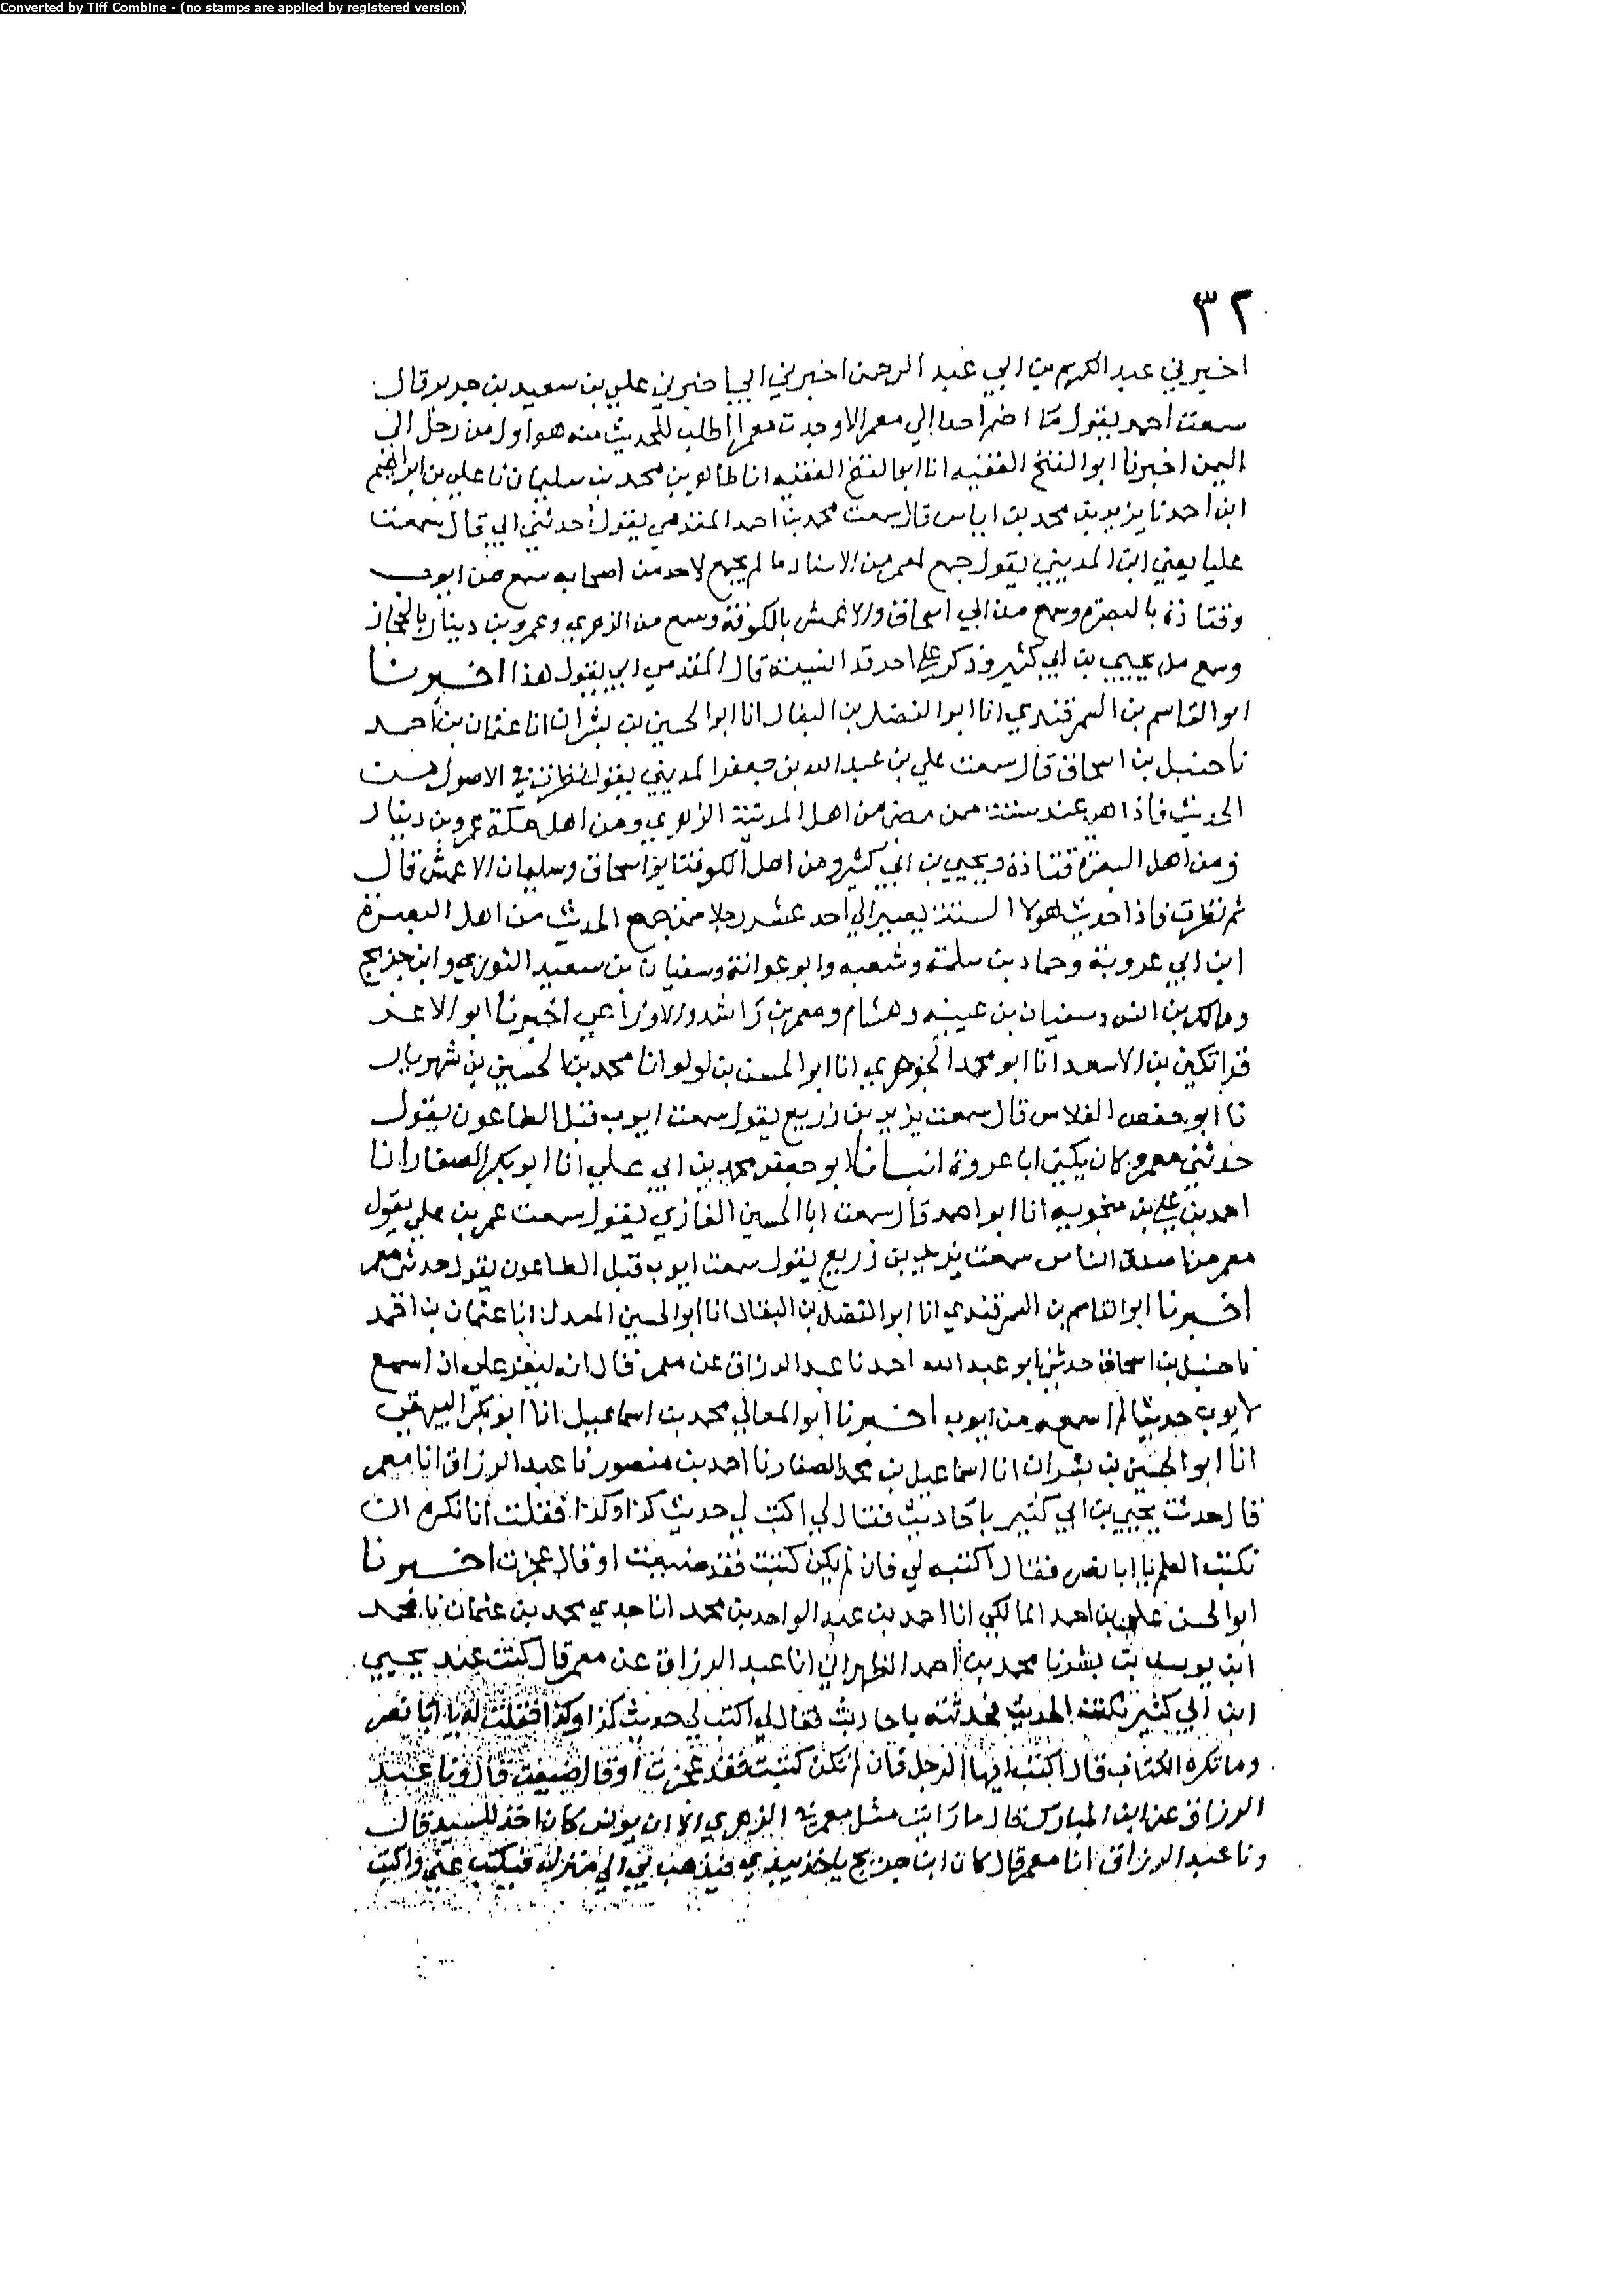 Converted by Tiff Combine - (no stamps are applied by registered version)
٣٢
اخبرني عبد الكريم بن ابي عبد الرحمن اخبرني ابي اخبرني علي بن سعيد بن جرير قال
سمعت احمد يقول ما اضم احدا الي معمر الا وجدت معمرا اطلب للحديث منه هو اول من رحل الي
اليمن اخبرنا ابو الفتح الفقيه انا ابو الفتح الفقيه انا طاهر بن محمد بن سليمان نا علي بن ابراهيم
ابن احمد نا يزيد بن محمد بن اياس قال سمعت محمد بن احمد المقدمي يقول حدثني ابي قال سمعت
عليا يعني ابن المديني يقول جمع لمعمر من الاسناد ما لم يجمع لاحد من اصحابه سمع من ايوب
وقتادة بالبصرة وسمع من ابي اسحاق والاعمش بالكوفة وسمع من الزهري وعمرو بن دينار بالحجاز
وسمع من يحيي بن ابي كثير وذكر علي احد قد انسيته قال المقدمي ابي يقول هذا اخبرنا
ابو القاسم بن السمرقندي انا ابو الفضل بن البقال انا ابو الحسين بن بشران انا عثمان بن احمد
نا حنبل بن اسحاق قال سمعت علي بن عبد الله بن جعفر المديني يقول نظرت في الاصول من
الحديث فاذا هي عند ستة ممن مضي من اهل المدينة الزهري ومن اهل مكة عمرو بن دينار
ومن اهل البصرة قتادة ويحيي بن ابي كثير ومن اهل الكوفة ابو اسحاق وسليمان الاعمش قال
ثم نظرت فاذا حديث هولا الستة يصير الي احد عشر رجلا ممن جمع الحديث من اهل البصرة
ابن ابي عروبة وحماد بن سلمة وشعبه وابو عوانة وسفيان بن سعيد الثوري وابن جريج
ومالك بن انس وسفيان بن عيينه وهشام ومعمر بن راشد والاوزاعي اخبرنا ابو الاعز
قراتكين بن الاسعد انا ابو محمد الجوهري انا ابو الحسن بن لولو انا محمد بن الحسين بن شهريار
نا ابو حفص الفلاس قال سمعت يزيد بن زريع يقول سمعت ايوب قبل الطاعون يقول
حدثني معمر وكان يكني ابا عروة انبانا ابو جعفر محمد بن ابي علي انا ابو بكر الصفار انا
احمد بن علي بن منجويه انا ابو احمد قال سمعت ابا الحسين الغازي يقول سمعت عمر بن علي يقول
معمر من اصدق الناس سمعت يزيد بن زريع يقول سمعت ايوب قبل الطاعون يقول حدثني معمر
اخبرنا ابو القاسم بن السمرقندي انا ابو الفضل بن البقال انا ابو الحسين المعدل انا عثمان بن احمد
نا حنبل بن اسحاق حدثني ابو عبد الله احمد نا عبد الرزاق عن معمر قال انه ليعز علي ان اسمع
لايوب حديثا لم اسمعه من ايوب اخبرنا ابو المعالي محمد بن اسماعيل انا ابو بكر البيهقي
انا ابو الحسين بن بشران انا اسماعيل بن محمد الصفار نا احمد بن منصور نا عبد الرزاق انا معمر
قال حدثت يحيي بن ابي كثير باحاديث فقال لي اكتب لي حديث كذا وكذا فقلت انا نكره ان
نكتب العلم يا ابا نصر فقال اكتبه لي فان لم يكن كتبت فقد ضيعت او قال عجزت اخبرنا
ابو الحسن علي بن احمد المالكي انا احمد بن عبد الواحد بن محمد انا جدي محمد بن عثمان نا محمد
ابن يوسف بن بشر نا محمد بن احمد الطهراني انا عبد الرزاق عن معمر قال كنت عند يحيي
ابن ابي كثير الحديث فحدثته باحاديث فقال لي اكتب لي حديث كذا وكذا فقلت له يا ابا نصر
وما تكره الكتاب قال اكتب ايها الرجل فان لم تكن كتبت فقد عجزت او قال ضيعت قال ونا عبد
الرزاق عن ابن المبارك قال ما رايت مثل معمر في الزهري الا ان يونس كان اخذ للسند قال
ونا عبد الرزاق انا معمر قال كان ابن جريج ياخذ بيدي فيذهب بي الي منزله فيكتب عني واكتب